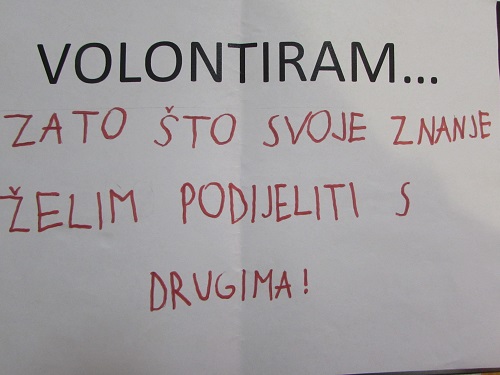 VOLONTIRAM...
ZATO ŠTO SVOJE ZNANJE
ŽELIM PODIJELITI S
DRUGIMA!